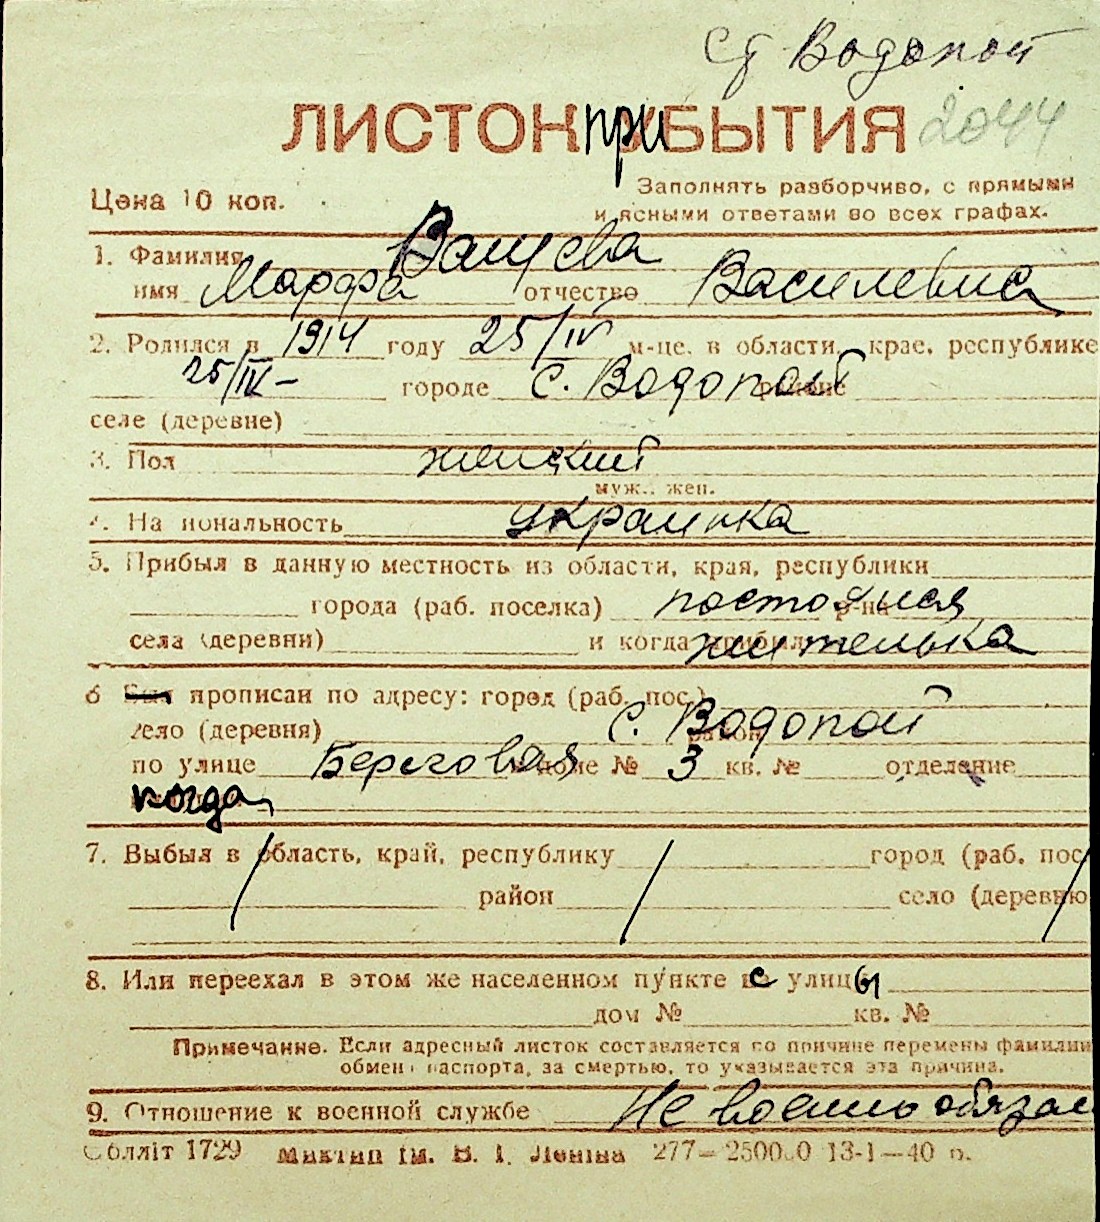 с Водопой
ЛИСТОК приБЫТИЯ 2044
Цена 10 коп.
Заполнять разборчиво, с прямыми
и ясными ответами во всех графах.
1. Фамилия Ващева
имя Марфа отчество Василевна
2. Родился в 1914 году 25/IV м-це, в области, крае, республике
25/IV- городе с. Водопой районе
селе (деревне)
3. Пол женский
муж., жен.
4. На иональность украинка
5. Прибыл в данную местность из области, края, республики
города (раб. поселка) р-на постояная
села (деревни) и когда прибыл жителька
6 Был прописан по адресу: город (раб. пос.)
село (деревня) район с. Водопой
по улице Береговая в доме № 3 кв. № отделение
когда
7. Выбыл в область, край, республику город (раб. пос
район село (деревню
8. Или переехал в этом же населенном пункте с улицы
дом № кв. №
Примечание. Если адресный листок составляется по причине перемены фамилии
обмен паспорта, за смертью, то указывается эта причина.
9. Отношение к военной службе Не военнообязан
Облліт 1729 Миктип ім. В. І. Леніна 277—250000 13-1—40 р.